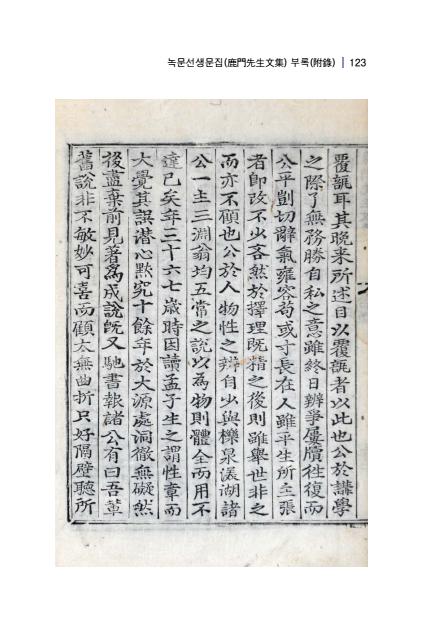 녹문선생문집(鹿門先生文集) 부록(附錄) | 123
覆瓿耳其晩來所述目以覆瓿者以此也公於講學
之際了無務勝自私之意雖終日辨爭屢牘徃復而
公平剴切辭氣雍容苟或寸長在人雖平生所主張
者卽改不少吝然於擇理旣精之後則雖擧世非之
而亦不顧也公於人物性之辨自少與櫟泉渼湖諸
公一主三淵翁均五常之說以爲物則體全而用不
達已矣年三十六七歲時因讀孟子生之謂性章而
大覺其誤潛心默究十餘年於大源處洞徹無礙然
後盡棄前見著爲成說旣又馳書報諸公有曰吾輩
舊說非不敏妙可喜而顧太無曲折只好隔壁聽所